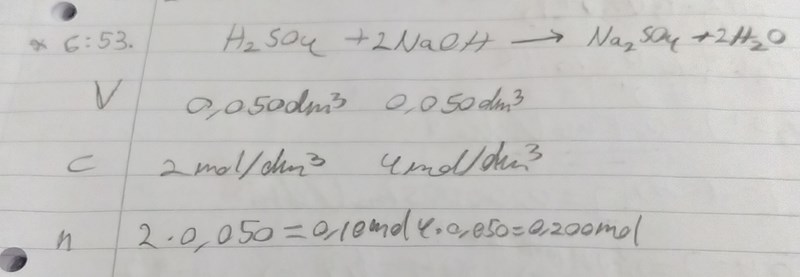 * 6:53. H₂SO₄ + 2NaOH → Na₂SO₄ + 2H₂O
V 0,050dm³ 0,050dm³
c 2mol/dm³ 4mol/dm³
n 2·0,050=0,10mol 4·0,050=0,200mol